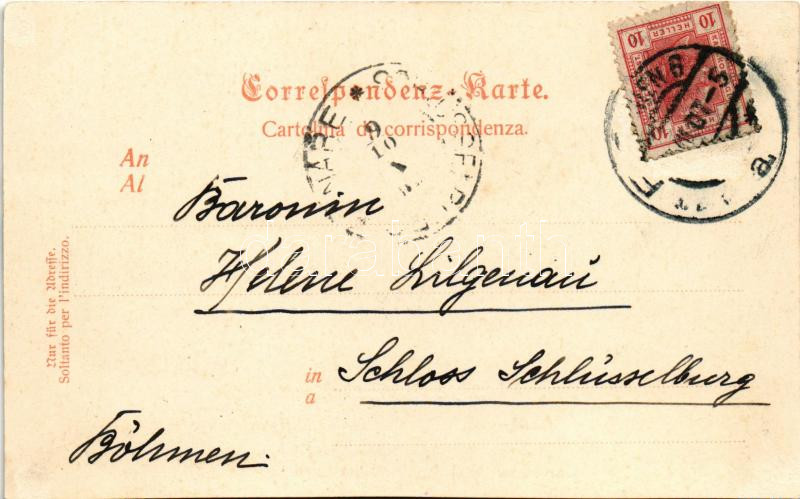 10 HELLER 10
Correspondenz-Karte.
Cartolina di corrispondenza.
An
Al
Baronin
Helene Lilgenau
in
a
Schloss Schlüsselburg
Böhmen.
Nur für die Adresse.
Soltanto per l'indirizzo.